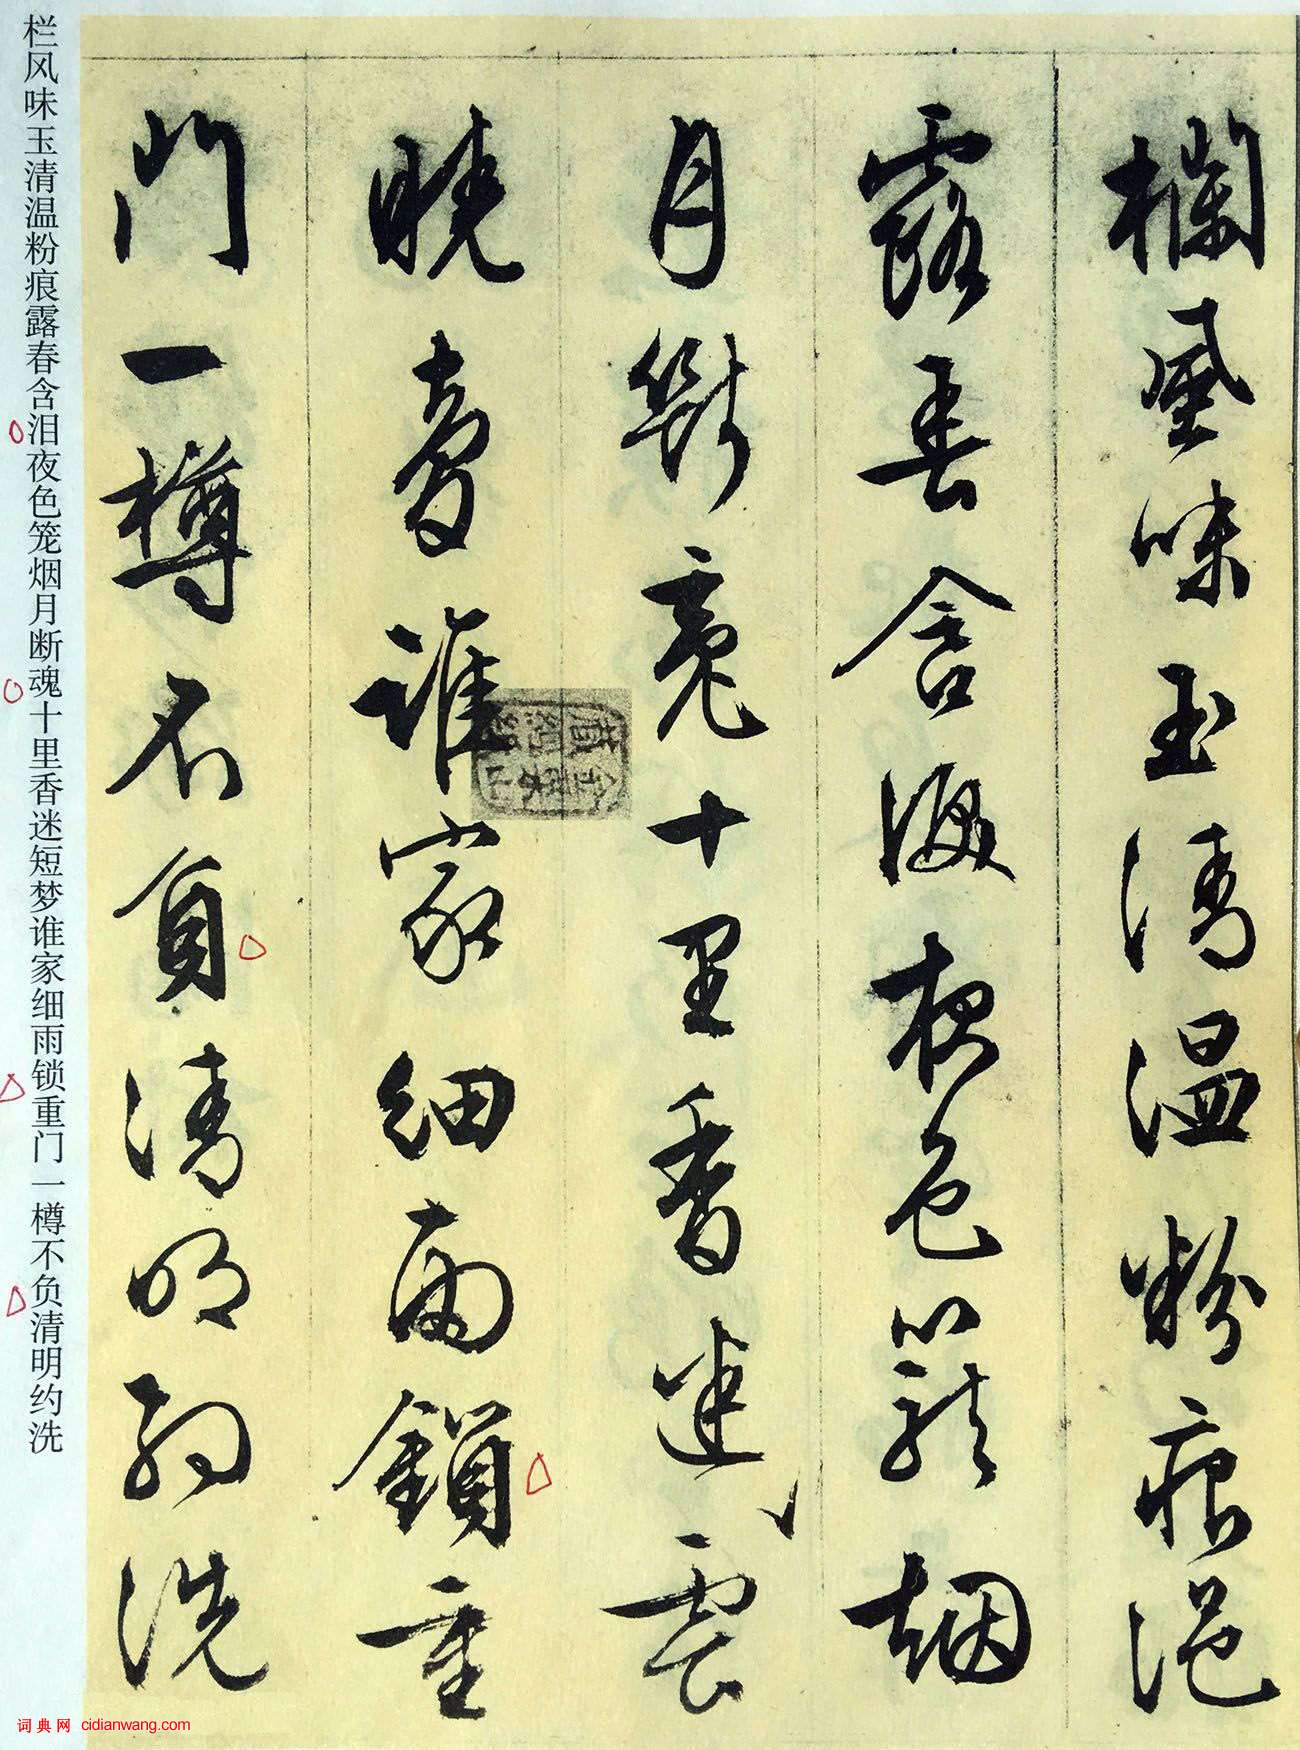 欄風味玉清温粉痕浥
露春含淚夜色籠烟
月斷魂十里香迷雲
曉夢誰家細雨鎖重
門一樽不負清明約洗
栏风味玉清温粉痕露春含泪夜色笼烟月断魂十里香迷短梦谁家细雨锁重门一樽不负清明约洗
词典网 cidianwang.com